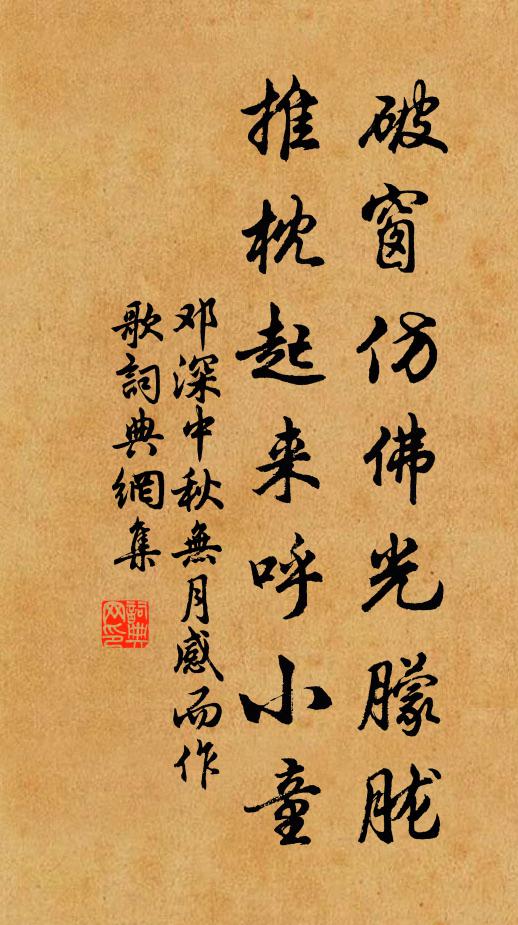 破窗仿佛光朦胧
推枕起来呼小童
邓深中秋無月感而作
歌詞典網集
詞典
网印